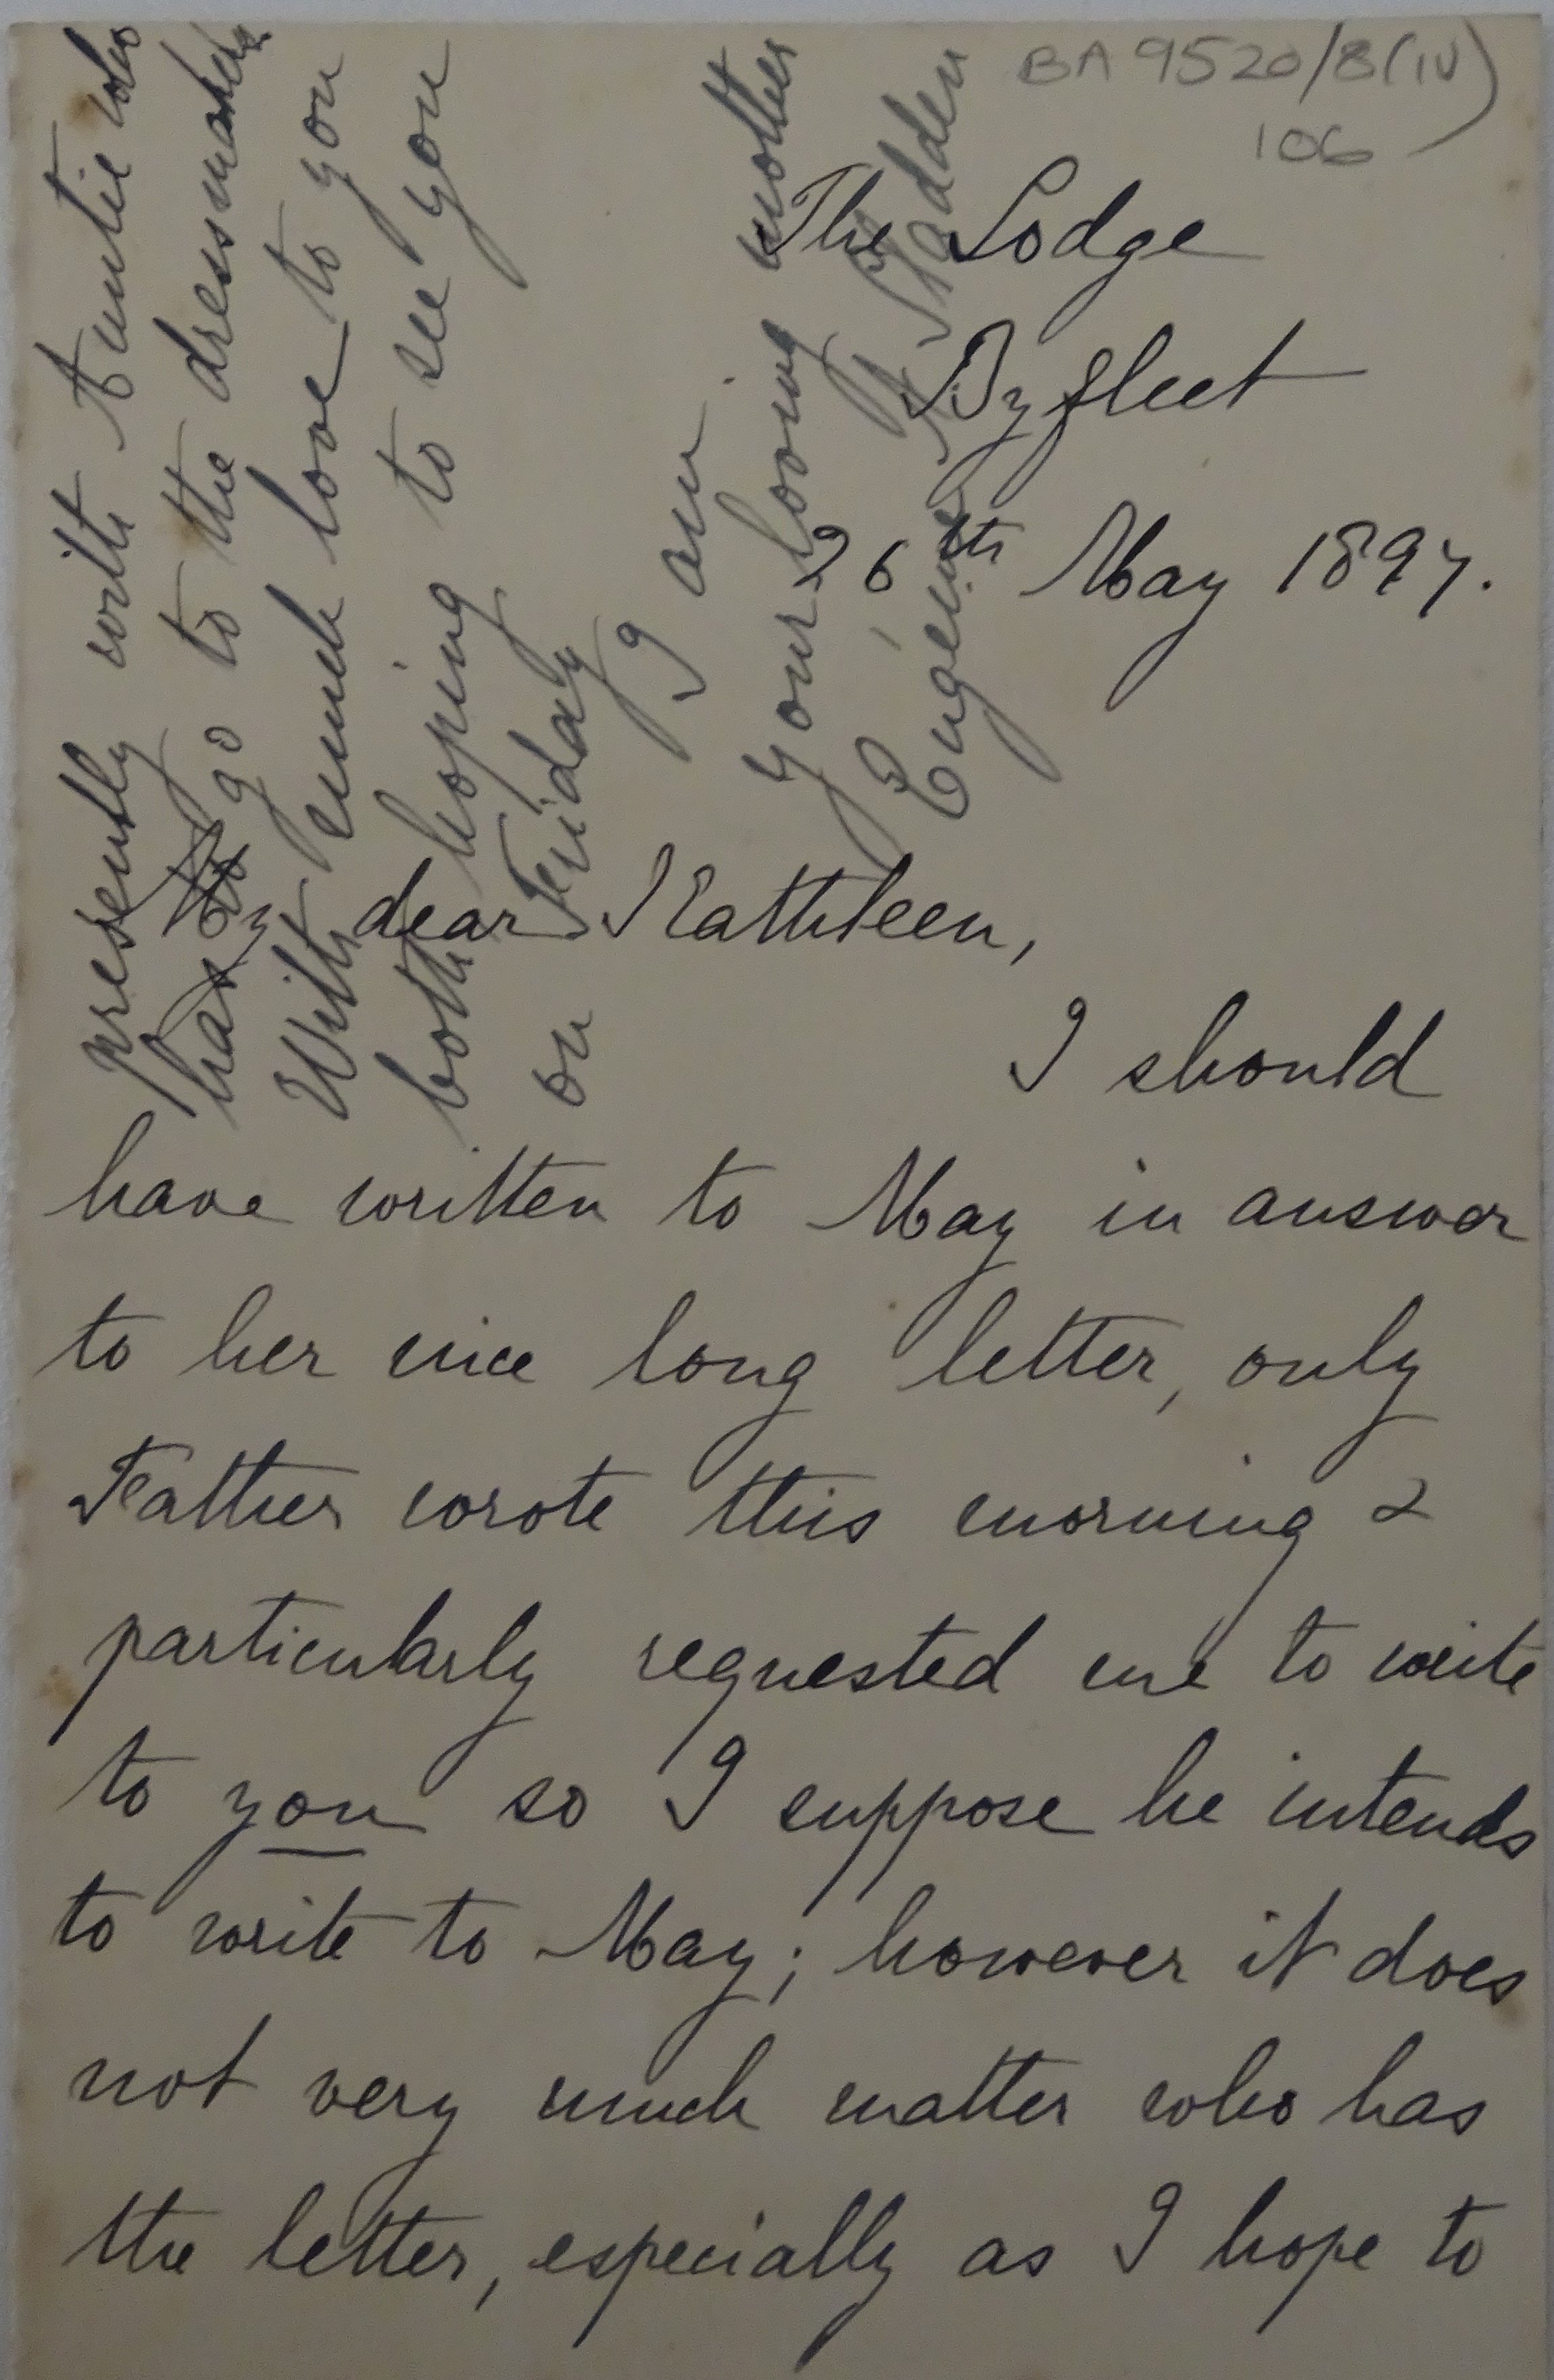 BA 9520/8(iv)
106
The Lodge
Byfleet
26th May 1897.
My dear Kathleen,
I should
have written to May in answer
to her nice long letter, only
Father wrote this morning &
particularly requested me to write
to you so I suppose he intends
to write to May; however it does
not very much matter who has
the letter, especially as I hope to
presently with Auntie who
has to go to the dressmakers
With much love to you
both hoping to see you
on Friday
I am
your loving mother
Eugénie N Stadden